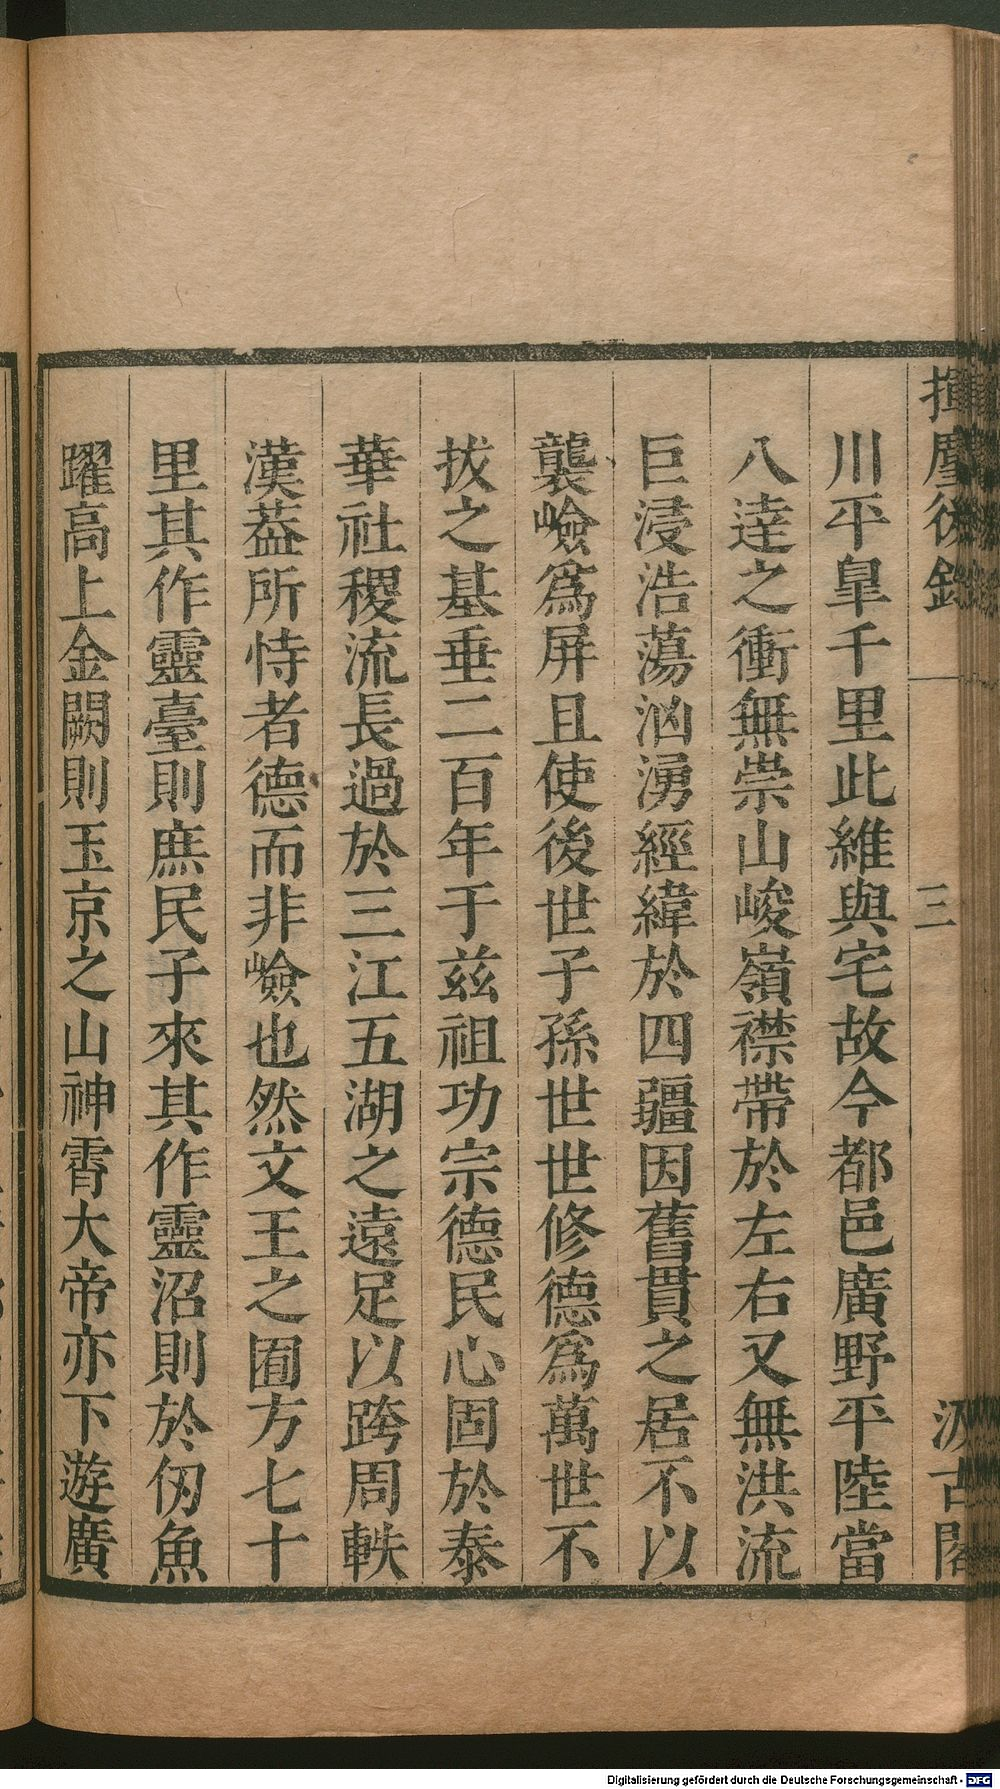 揮麈後錄
三
汲古閣
川平臯千里此維與宅故今都邑廣野平陸當
八逹之衝無崇山峻嶺襟帶於左右又無洪流
巨浸浩蕩洶湧經緯於四疆因舊貫之居不以
襲嶮爲屏且使後世子孫世世修德爲萬世不
拔之基垂二百年于兹祖功宗德民心固於泰
華社稷流長過於三江五湖之遠足以跨周軼
漢葢所恃者德而非嶮也然文王之囿方七十
里其作靈臺則庶民子來其作靈沼則於仞魚
躍高上金闕則玉京之山神霄大帝亦下遊廣
Digitalisierung gefördert durch die Deutsche Forschungsgemeinschaft - DFG